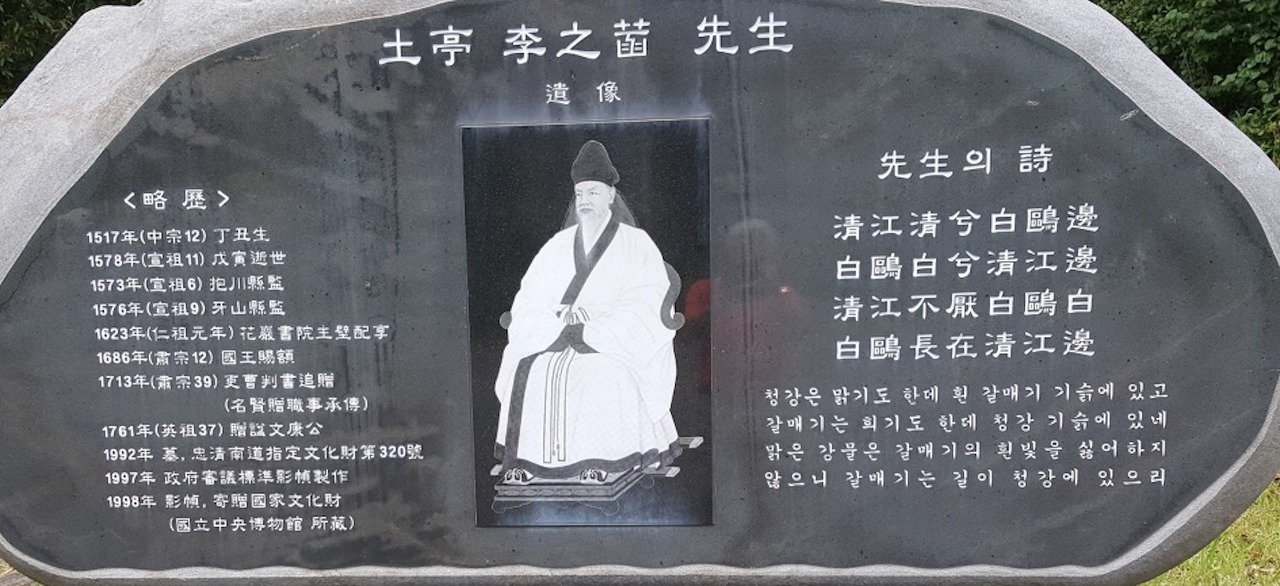 土亭 李之菡 先生
遺像
<略歷>
1517年(中宗12) 丁丑生
1578年(宣祖11) 戊寅逝世
1573年(宣祖6) 抱川縣監
1576年(宣祖9) 牙山縣監
1623年(仁祖元年) 花巖書院主壁配享
1686年(肅宗12) 國王賜額
1713年(肅宗39) 吏曹判書追贈
(名賢贈職事承傳)
1761年(英祖37) 贈諡文康公
1992年 墓, 忠清南道指定文化財第320號
1997年 政府審議標準影幀製作
1998年 影幀, 寄贈國家文化財
(國立中央博物館 所藏)
先生의 詩
清江清兮白鷗邊
白鷗白兮清江邊
清江不厭白鷗白
白鷗長在清江邊
청강은 맑기도 한데 흰 갈매기 기슭에 있고
갈매기는 희기도 한데 청강 기슭에 있네
맑은 강물은 갈매기의 흰빛을 싫어하지
않으니 갈매기는 길이 청강에 있으리